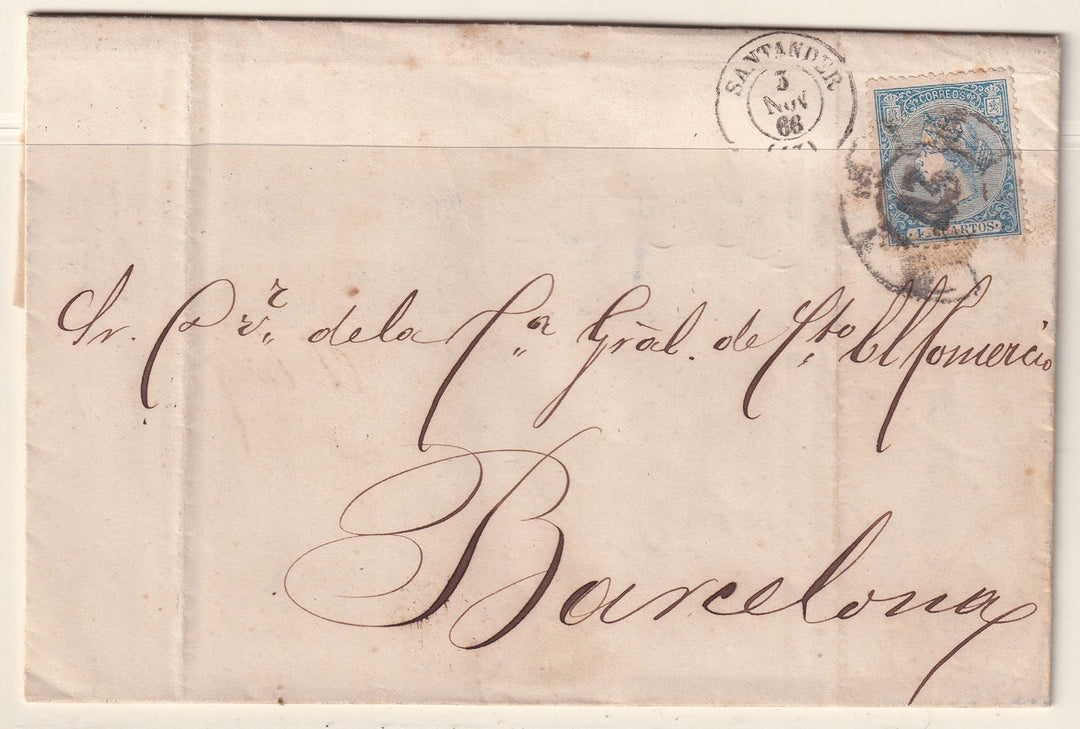 SANTANDER
3
NOV
66
CORREOS
4 CUARTOS
Sr. Pr. de la Cª Grâl. de Cto El Comercio
Barcelona